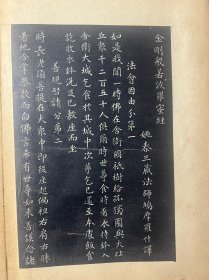 金剛般若波羅蜜經
姚秦三藏法師鳩摩羅什譯
法會因由分第一
如是我聞一時佛在舍衛國祇樹給孤獨園與大比
丘衆千二百五十人俱爾時世尊食時著衣持鉢入
舍衛大城乞食於其城中次第乞已還至本處飯食
訖收衣鉢洗足已敷座而坐
善現啟請分第二
時長老須菩提在大衆中即從座起偏袒右肩右膝
著地合掌恭敬而白佛言希有世尊如來善護念諸